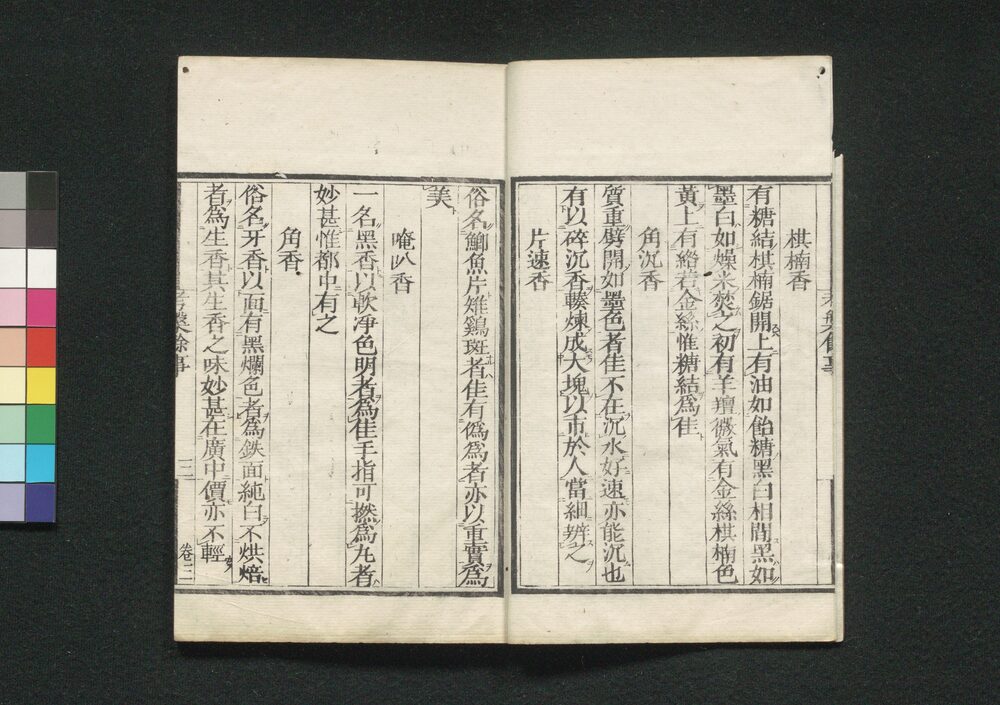 棋楠香
有糖結棋楠鋸開上有油如飴糖黑白相間黑如
墨白如燥米焚之初有羊羶微氣有金絲棋楠色
黃上有綹若金絲惟糖結為佳
角沉香
質重劈開如墨色者佳不在沉水好速亦能沉也
有以碎沉香輳煉成大塊以市於人當細辨之
片速香
俗名鯽魚片雉鷄斑者佳有僞為者亦以重實為
美
唵叭香
一名黑香以軟净色明者為佳手指可撚為丸者
妙甚惟都中有之
角香
俗名牙香以面有黑爛色者為鉄面純白不烘焙
者為生香其生香之味妙甚在廣中價亦不輕
考槃餘事
三
卷三